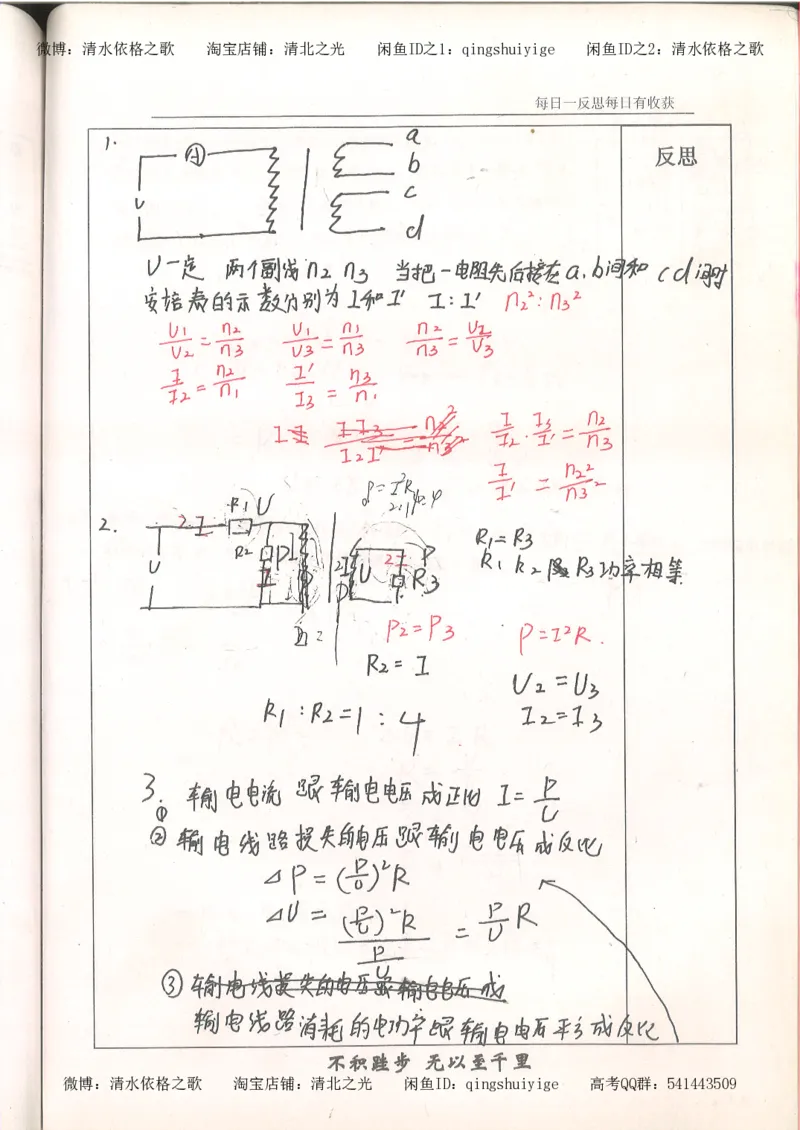 微博：清水依格之歌 淘宝店铺：清北之光 闲鱼ID之1：qingshuiyige 闲鱼ID之2：清水依格之歌
每日一反思每日有收获
反思
1.
A
U
a
b
c
d
U一定 两个副线 n2 n3 当把一电阻先后接在a，b间和 cd间时
安培表的示数分别为 I和I' I：I' n2²：n3²
U1/U2 = n2/n3 U1/U3 = n1/n3 n2/n3 = U2/U3
I/I2 = n2/n1 I'/I3 = n3/n1
I/I2 · I3/I' = n2/n3
I/I' = n2²/n3²
P=I²R
2.
2I R1 U
U R2 P I
2I U P R3
R1=R3
R1 R2 R3功率相等
P2=P3 P=I²R.
R2= I
U2=U3
R1：R2=1：4 I2=I3
3.
① 输电电流 跟输电电压 成正比 I= P/U
② 输电线路损失的电压跟输电电压成反比
△P=(P/U)²R
△U= (P/U)²R / (P/U) = P/U R
③ 输电线损失的电压跟输电电压成
输电线路消耗的电功率跟输电电压平方成反比
不积跬步 无以至千里
微博：清水依格之歌 淘宝店铺：清北之光 闲鱼ID：qingshuiyige 高考QQ群：541443509